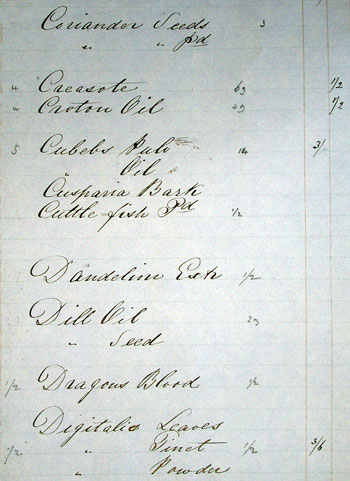 Coriander Seeds 3
" " Pd
4 Creasote 63 1/2
Croton Oil 43 1/2
5 Cubebs Pulv " 14 3/
" Oil "
Cusparia Bark
Cuttle-fish Pd 1/2
Dandelion Ext 1/2
Dill Oil 23
" Seed
1/2 Dragons Blood 1/2
Digitalis Leaves
1/2 " Tinct 1/2 3/6
" Powder